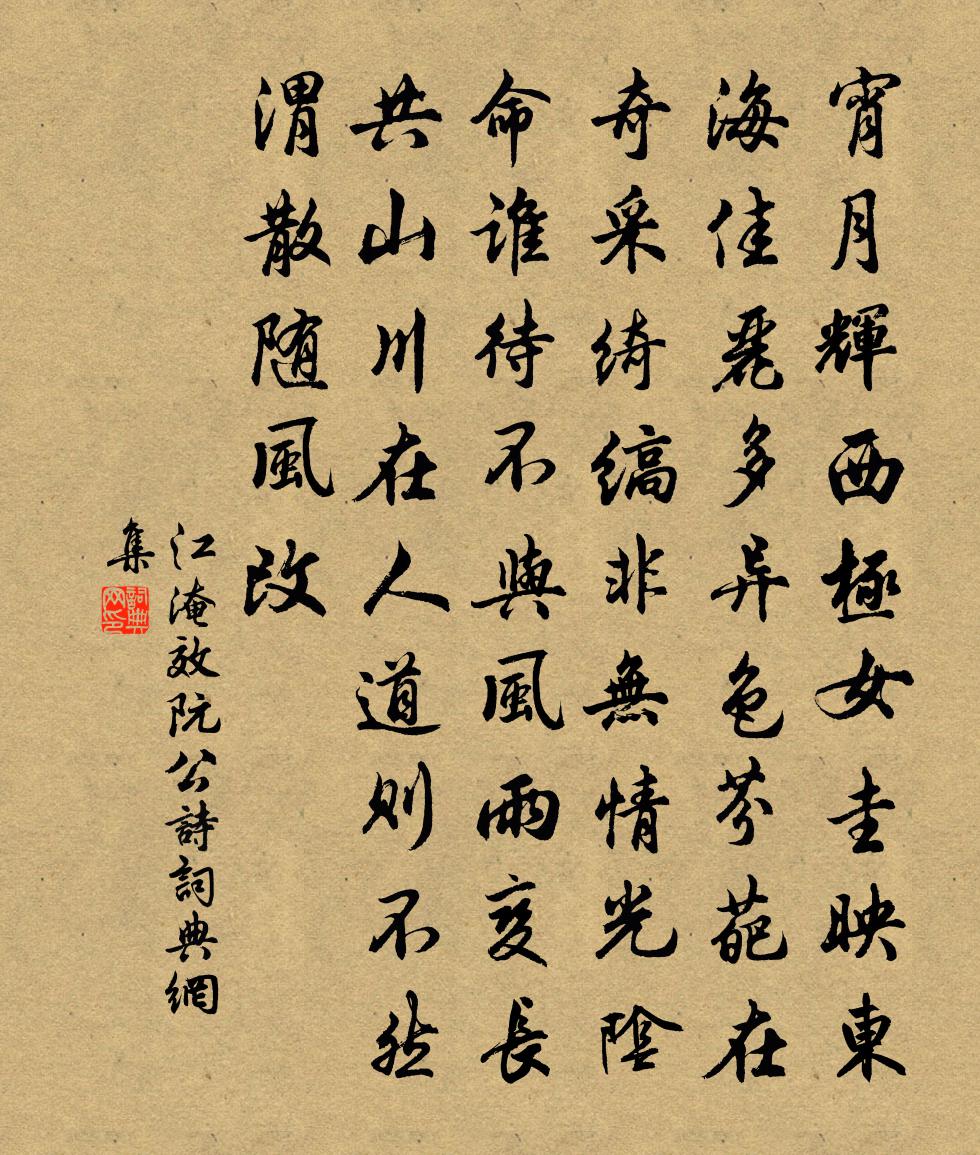 宵月輝西極女圭映東
海佳麗多异色芬葩在
奇采綺縞非無情光陰
命誰待不與風雨変長
共山川在人道則不然
渭散随風改
江淹效阮公詩詞典網
集
詞典网印